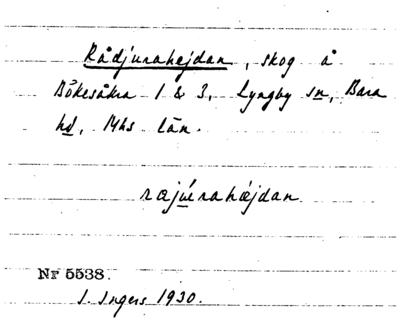 Rådjurahejdan, skog å
Bökesåkra 1 & 3, Lyngby sn, Bara
hd, Mhs län.
ræjúrahæjdan
Nr 5538.
I. Ingers 1930.